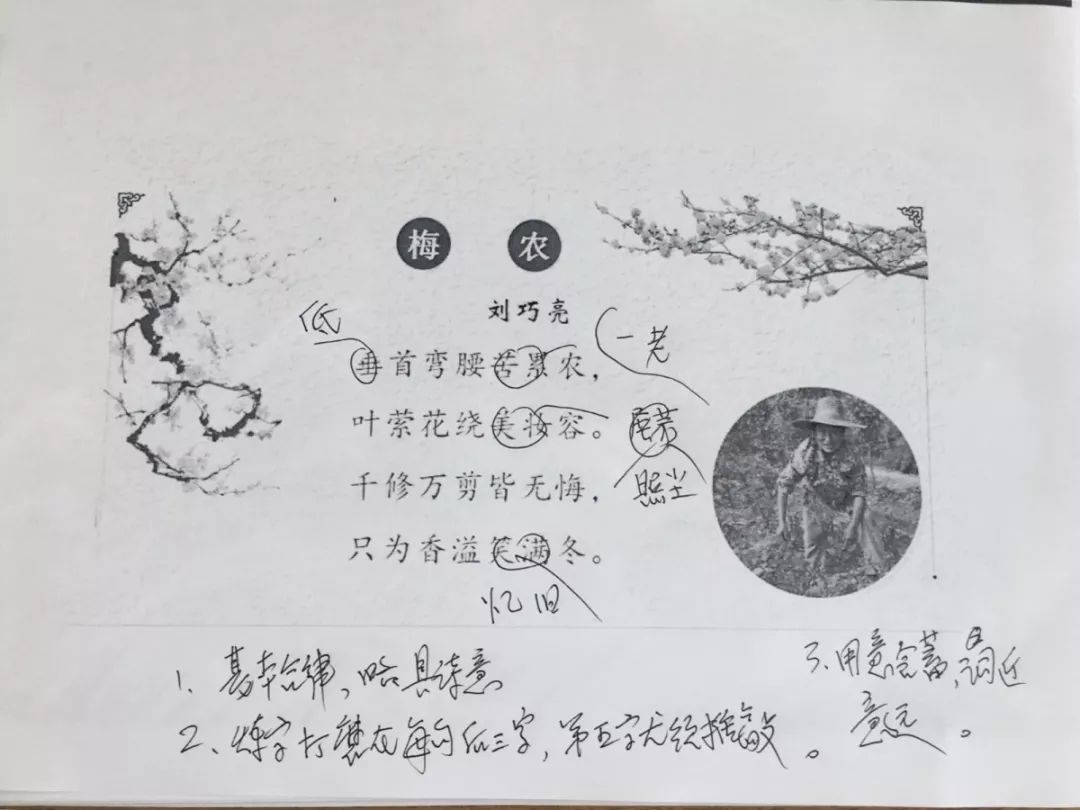 梅 农
刘巧亮
低
一老
垂首弯腰苦累农，
叶萦花绕美妆容。
照尘
千修万剪皆无悔，
只为香溢笑满冬。
忆旧
1、基本合律，略具诗意
2、炼字打磨在每句后三字，第五字尤须推敲。
3、用意含蓄，词近
意远。